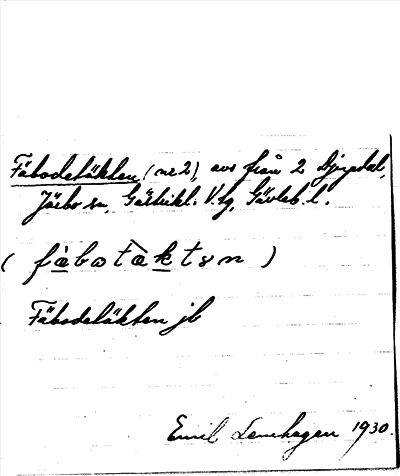 Fäbodetäkten (nr 2), avs från 2 Djupdal,
Järbo sn, Gästrikl. V. tg, Gävleb. l.
( fàbotäktɘn )
Fäbodetäkten jb
Emil Lenehagen 1930.